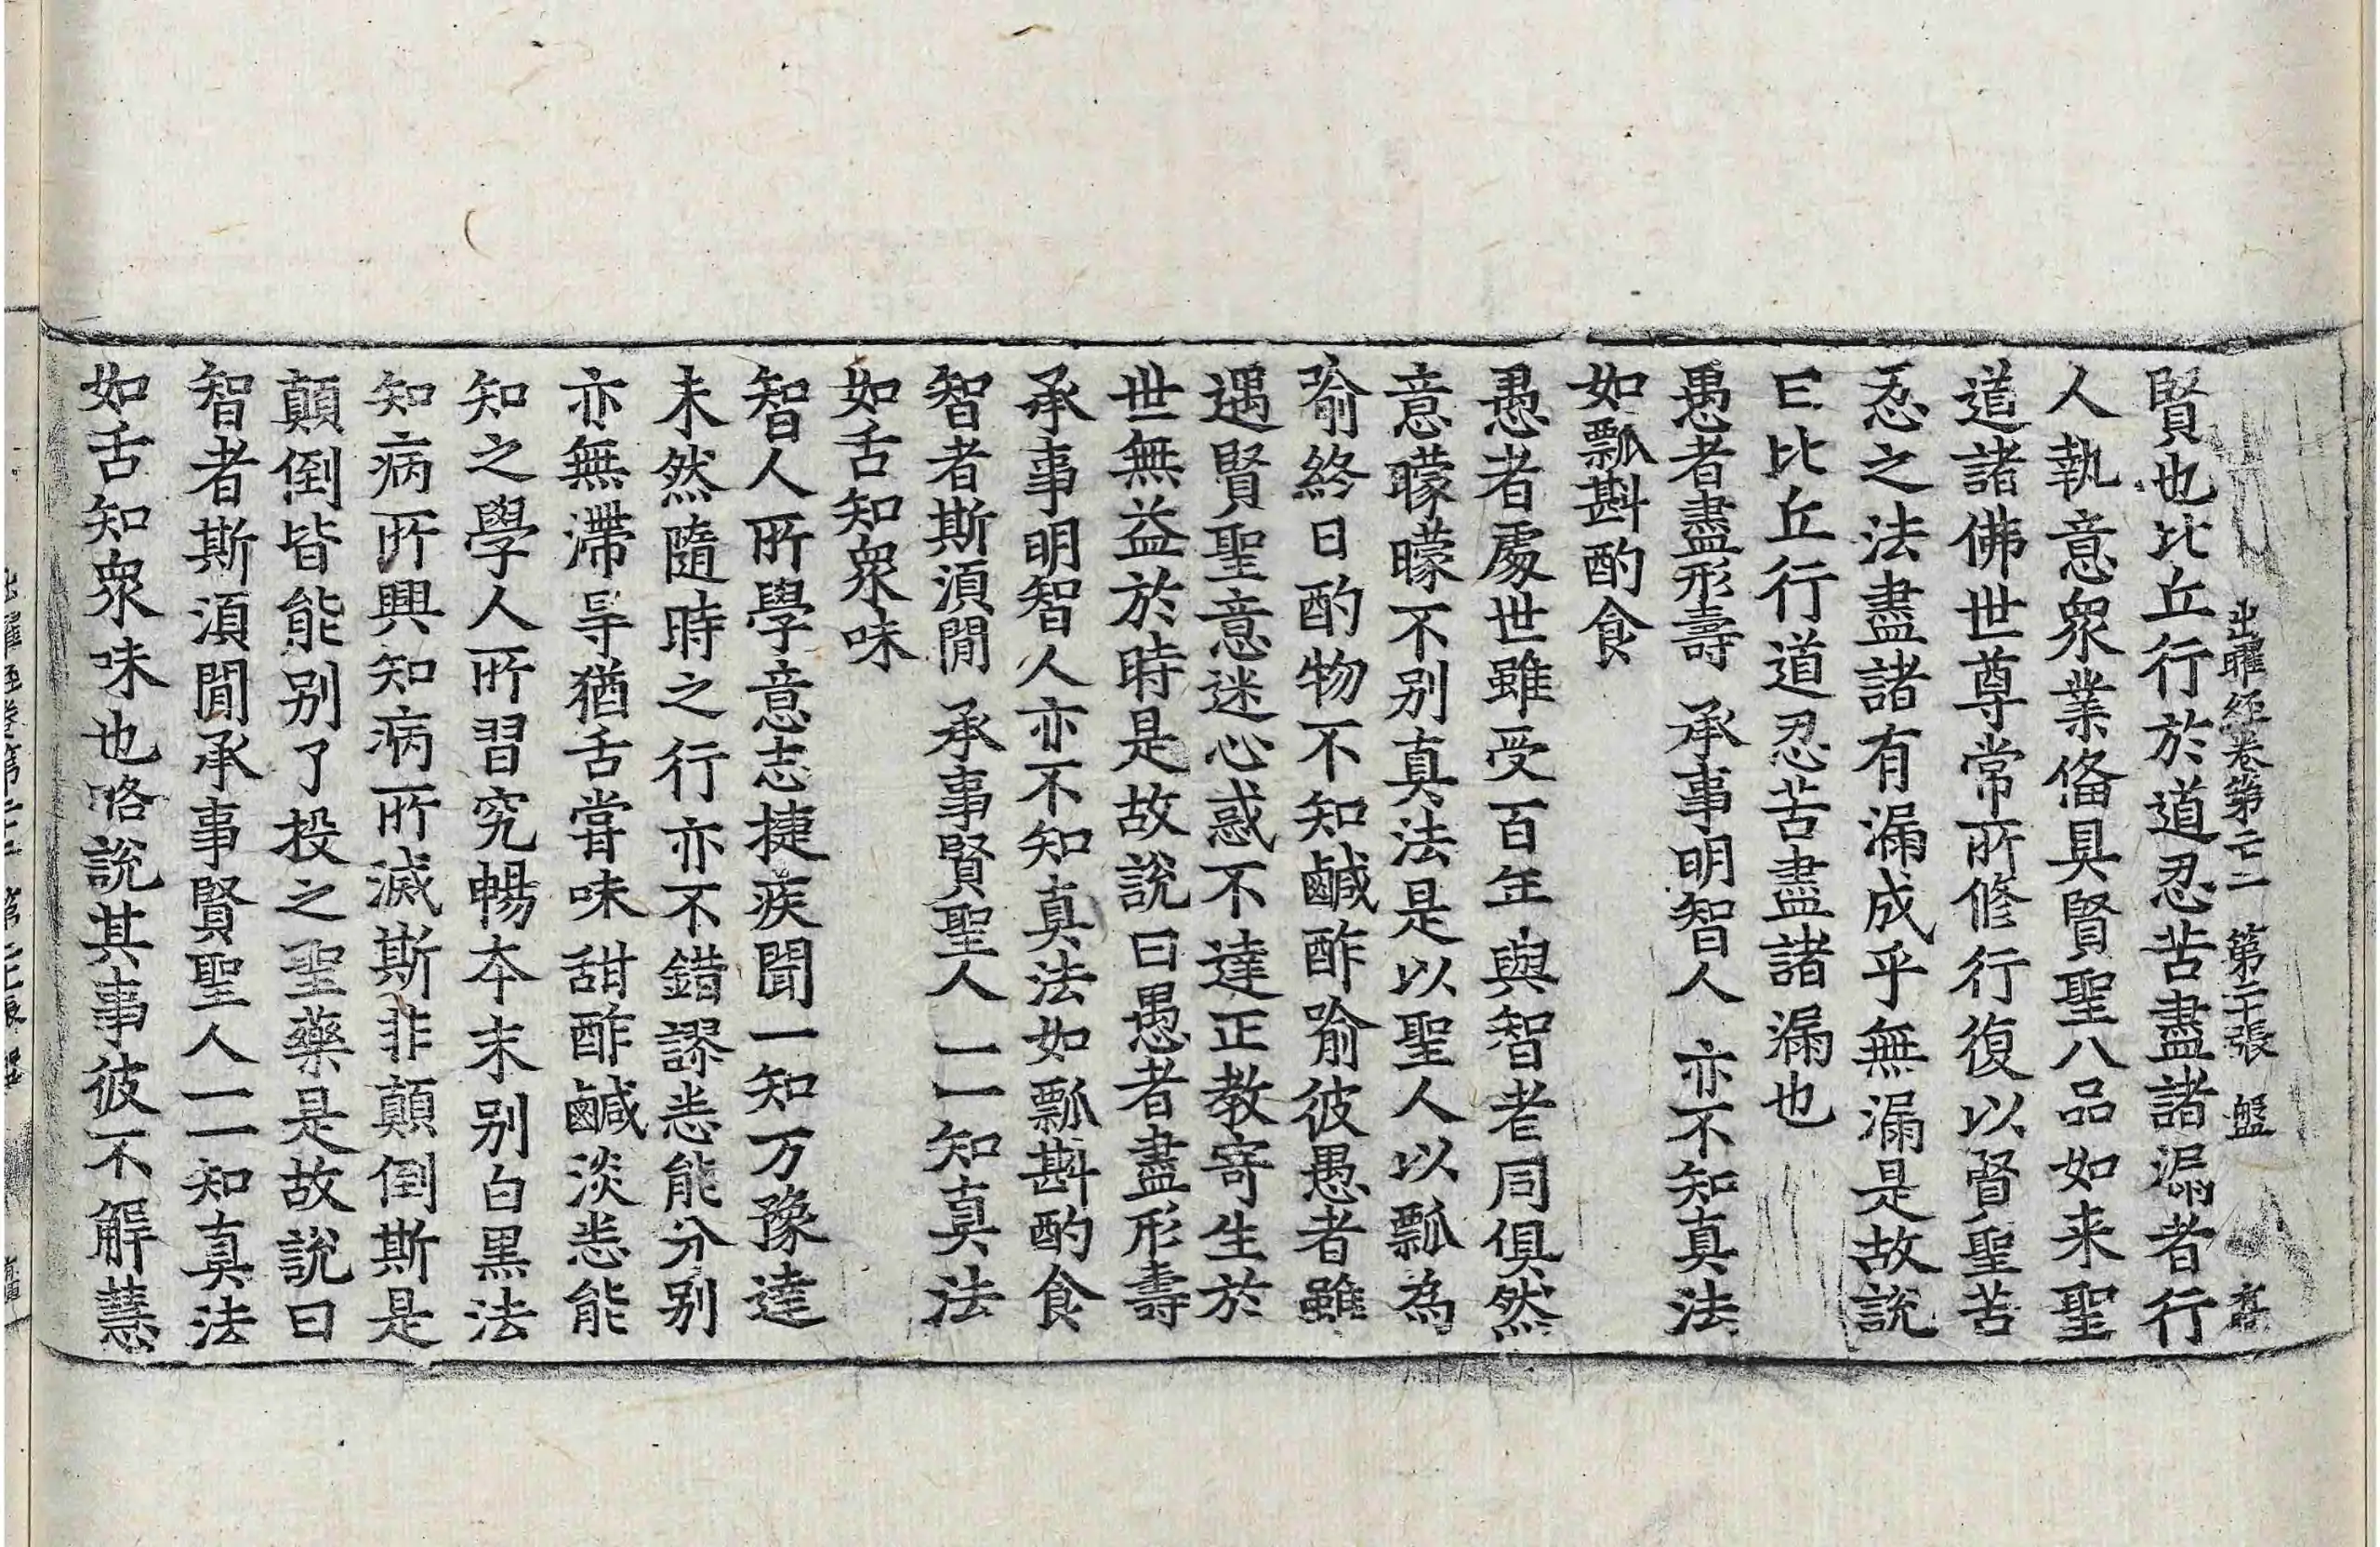 出曜經卷第二十二 第二十張 盤
賢也比丘行於道忍苦盡諸漏者行
人執意衆業俻具賢聖八品如来聖
道諸佛世尊常所修行復以賢聖苦
忍之法盡諸有漏成乎無漏是故說
曰比丘行道忍苦盡諸漏也
愚者盡形壽 承事明智人 亦不知真法
如瓢斟酌食
愚者處世雖受百年與智者同俱然
意矇矇不別真法是以聖人以瓢為
喻終日酌物不知鹹酢喻彼愚者雖
遇賢聖意迷心惑不達正教寄生於
世無益於時是故說曰愚者盡形壽
承事明智人亦不知真法如瓢斟酌食
智者斯須間 承事賢聖人 一一知真法
如舌知衆味
智人所學意志捷疾聞一知万豫達
未然隨時之行亦不錯謬悉能分別
亦無滯㝵猶舌嘗味甜酢鹹淡悉能
知之學人所習究暢本末別白黑法
知病所興知病所滅斯非顛倒斯是
顛倒皆能別了投之聖藥是故說曰
智者斯須間承事賢聖人一一知真法
如舌知衆味也略說其事彼不解慧